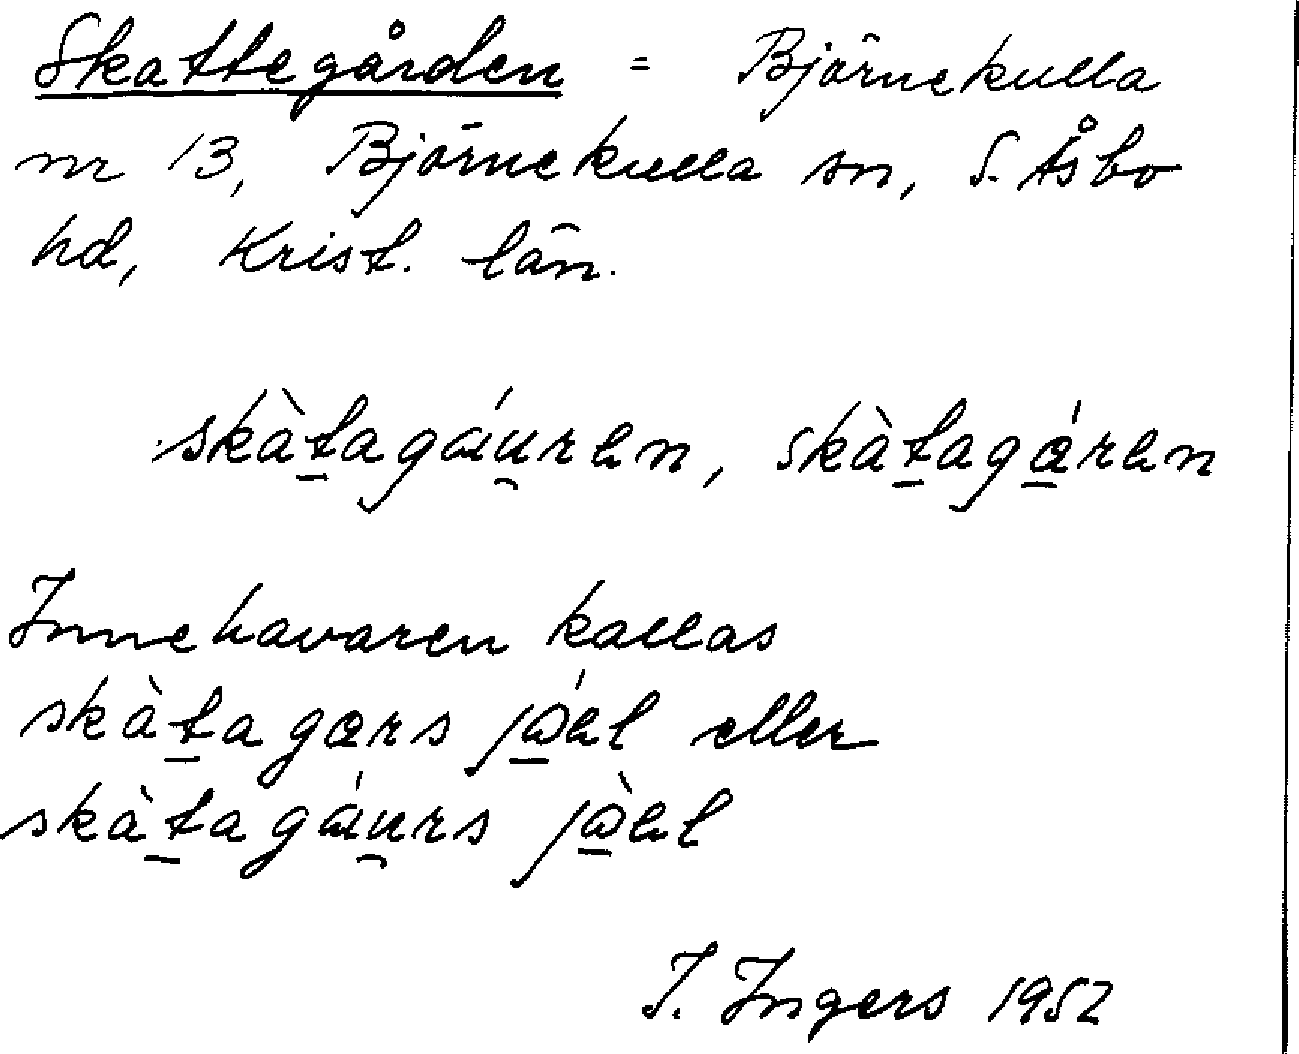 Skattegården = Björnekulla
nr 13, Björnekulla sn, S. Åsbo
hd, Krist. län.
skàt̲agáu̯rən, skàt̲agɑ̲́rən
Innehavaren kallas
skàt̲agɑrs jώ̲əl eller
skàt̲agáu̯rs jὼ̲əl
I. Ingers 1952